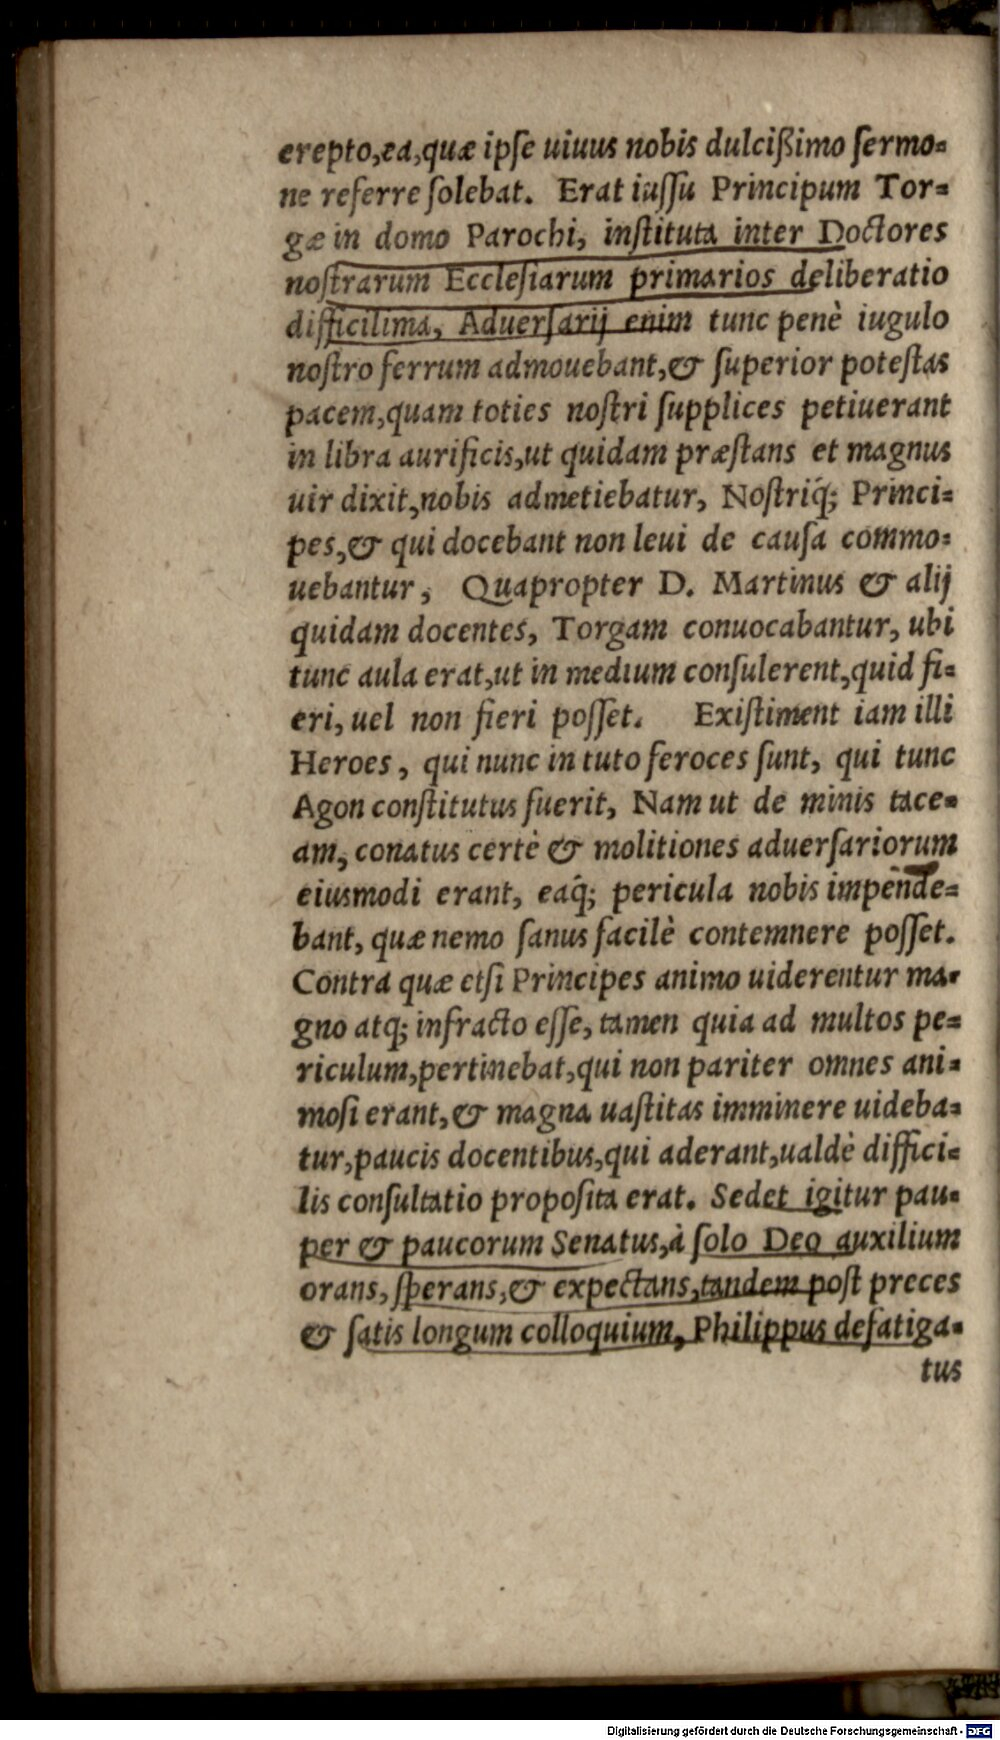 erepto,ea,quæ ipſe uiuus nobis dulcißimo ſermo-
ne referre ſolebat. Erat iuſſu Principum Tor-
gæ in domo Parochi, inſtituta inter Doctores
noſtrarum Eccleſiarum primarios deliberatio
difficilima, Aduerſarij enim tunc penè iugulo
noſtro ferrum admouebant,& ſuperior poteſtas
pacem,quam toties noſtri ſupplices petiuerant
in libra aurificis,ut quidam præſtans et magnus
uir dixit,nobis admetiebatur, Noſtriq́; Princi-
pes,& qui docebant non leui de cauſa commo-
uebantur, Quapropter D. Martinus & alij
quidam docentes, Torgam conuocabantur, ubi
tunc aula erat,ut in medium conſulerent,quid fi-
eri, uel non fieri poſſet. Exiſtiment iam illi
Heroes, qui nunc in tuto feroces ſunt, qui tunc
Agon conſtitutus fuerit, Nam ut de minis tace-
am, conatus certè & molitiones aduerſariorum
eiusmodi erant, eaq́; pericula nobis impende-
bant, quæ nemo ſanus facilè contemnere poſſet.
Contra quæ etſi Principes animo uiderentur ma-
gno atq; infracto eſſe, tamen quia ad multos pe-
riculum,pertinebat,qui non pariter omnes ani-
moſi erant,& magna uaſtitas imminere uideba-
tur,paucis docentibus,qui aderant,ualdè diffici-
lis conſultatio propoſita erat. Sedet igitur pau-
per & paucorum Senatus,à ſolo Deo auxilium
orans, ſperans,& expectans,tandem poſt preces
& ſatis longum colloquium, Philippus defatiga-
tus
Digitalisierung gefördert durch die Deutsche Forschungsgemeinschaft - DFG